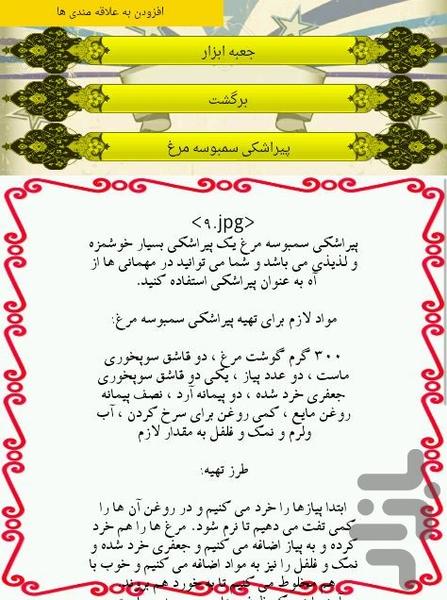 افزودن به علاقه مندی ها
جعبه ابزار
برگشت
پیراشکی سمبوسه مرغ
<۹.jpg>
پیراشکی سمبوسه مرغ یک پیراشکی بسیار خوشمزه
و لذیذی می باشد و شما می توانید در مهمانی ها از
آه به عنوان پیراشکی استفاده کنید.
مواد لازم برای تهیه پیراشکی سمبوسه مرغ:
۳۰۰ گرم گوشت مرغ ، دو قاشق سوپخوری
ماست ، دو عدد پیاز ، یکی دو قاشق سوپخوری
جعفری خرد شده ، دو پیمانه آرد ، نصف پیمانه
روغن مایع ، کمی روغن برای سرخ کردن ، آب
ولرم و نمک و فلفل به مقدار لازم
طرز تهیه:
ابتدا پیازها را خرد می کنیم و در روغن آن ها را
کمی تفت می دهیم تا نرم شود. مرغ ها را هم خرد
کرده و به پیاز اضافه می کنیم و جعفری خرد شده و
نمک و فلفل را نیز به مواد اضافه می کنیم و خوب با
هم مخلوط می کنیم تا به خورد هم بروند.
بازار